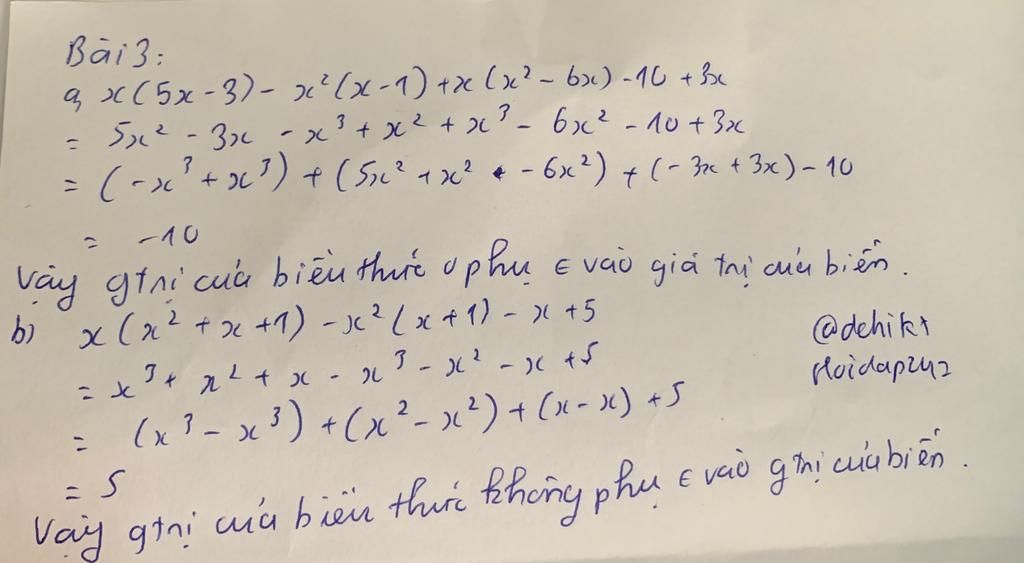 Bài 3:
a, x(5x - 3) - x²(x - 1) + x(x² - 6x) - 10 + 3x
= 5x² - 3x - x³ + x² + x³ - 6x² - 10 + 3x
= (-x³ + x³) + (5x² + x² - 6x²) + (-3x + 3x) - 10
= -10
Vậy gtrị của biểu thức o phụ ∈ vào giá trị của biến.
b) x(x² + x + 1) - x²(x + 1) - x + 5
= x³ + x² + x - x³ - x² - x + 5
= (x³ - x³) + (x² - x²) + (x - x) + 5
= 5
Vậy gtrị của biểu thức không phụ ∈ vào gtrị của biến.
@dehikt
Hoidap242